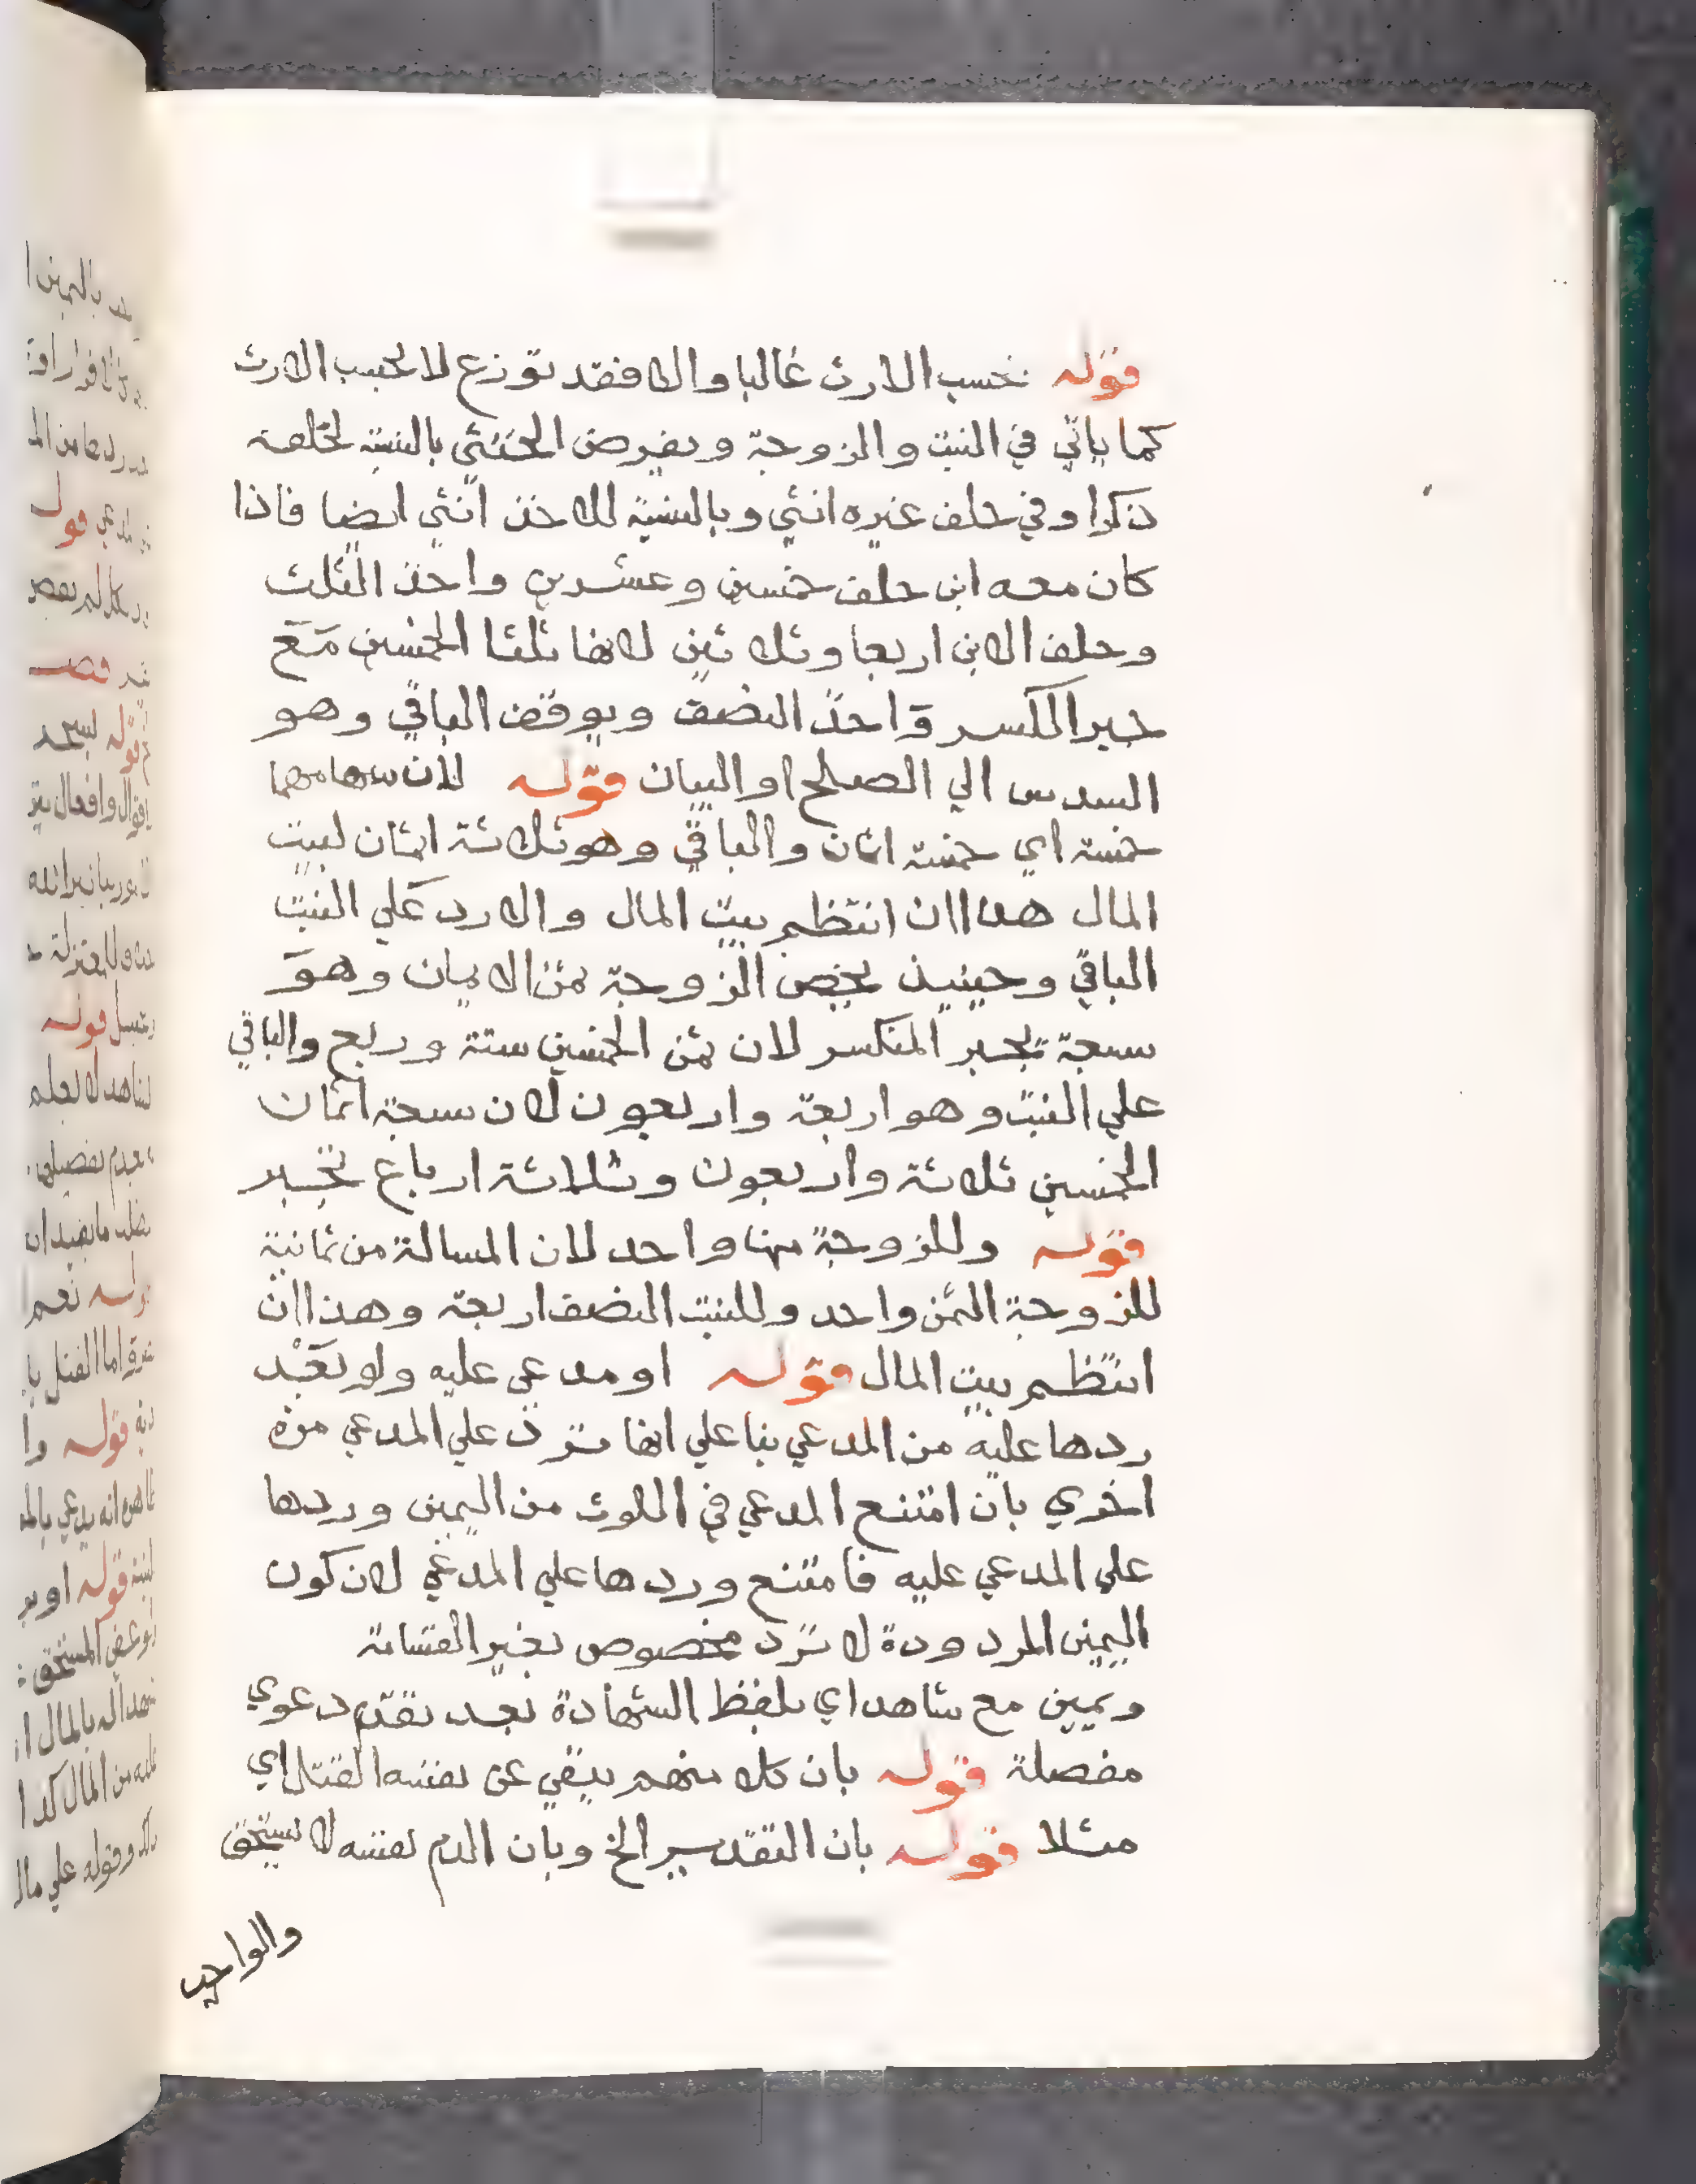 قوله بحسب الارث غالبا والا فقد توزع لا بحسب الارث
كما ياتي في البنت والزوجة ويفرض الخنثي بالنسبة لحلفه
ذكرا وفي حلف غيره انثي وبالنسبة للاخذ انثي ايضا فاذا
كان معه ابن حلف خمسين وعشرين واخذ الثلث
وحلف الابن اربعا وثلاثين لانها ثلثا الخمسين مع
جبر الكسر واخذ النصف ويوقف الباقي وهو
السدس الي الصلح او البيان قوله لان سهامهما
خمسة اي خمسة اثمان والباقي وهو ثلاثة اثمان لبيت
المال هذا ان انتظم بيت المال والا رد علي البنت
الباقي وحينيذ يخص الزوجة ثمن الايمان وهو
سبعة بجبر المنكسر لان ثمن الخمسين ستة وربع والباقي
علي البنت وهو اربعة واربعون لان سبعة اثمان
الخمسين ثلاثة واربعون وثلاثة ارباع تجبر
قوله وللزوجة منها واحد لان المسالة من ثمانية
للزوجة الثمن واحد وللبنت النصف اربعة وهذا ان
انتظم بيت المال قوله او مدعي عليه ولو بعد
ردها عليه من المدعي بنا علي انها ترد علي المدعي مرة
اخري بان امتنع المدعي في اللوث من اليمين وردها
علي المدعي عليه فامتنع وردها علي المدعي لان كون
اليمين المردودة لا ترد مخصوص بغير القسامة
ويمين مع شاهد اي بلفظ الشهادة بعد تقدم دعوي
مفصلة قوله بان كلا منهم ينفي عن نفسه القتل اي
مثلا قوله بان التقدير الخ وبان الدم نفسه لا يستحق
والواجب